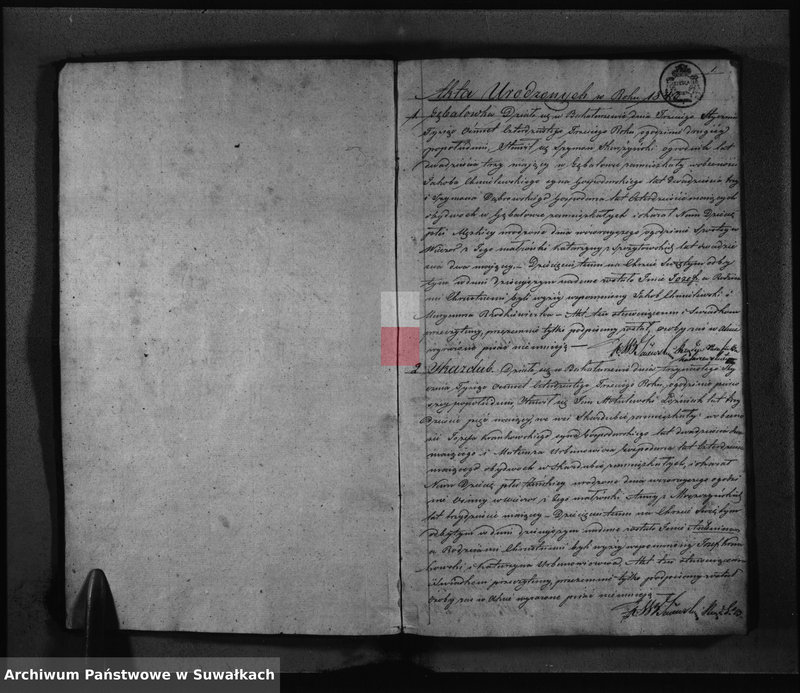 Akta Urodzonych w Roku 1843
1 Gębalówka. Działo się w Bakałarzewie dnia Trzeciego Stycznia
Tysiąc Ośmset czterdziestego Trzeciego Roku, o godzinie drugiej
popołudniu, Stawił się Szymon ogrodnik lat
dwadzieścia trzy mający w Gębalowce zamieszkały w obecności
Jakóba Chmielewskiego syna Gospodarskiego lat dwadzieścia trzy
i Szymona Dąbrowskiego Gospodarza lat czterdzieści mających
obydwóch w Gębalowce zamieszkałych i okazał Nam Dziecię
płci Męzkiej urodzone dnia wczorajszego o godzinie
Wieczór z Jego małżonki Katarzyny z lat dwadzie
ścia dwa mającej. Dziecięciu temu na Chrzcie Świętym odby
tym w dniu dzisiejszym nadane zostało Imię Józef a Rodzica
mi Chrzestnemi byli wyżej wspomniony Jakób Chmielewski i
Maryanna Akt ten stawającemu i Świadkom
przeczytany, przez nas tylko podpisany został, osoby zaś w Akcie
wyrażone pisać nieumieją
2 Skazdub. Działo się w Bakałarzewie dnia trzynastego Sty
cznia, Tysiąc Ośmset czterdziestego Trzeciego Roku, o godzinie pierw
szej popołudniu, Stawił się Jan lat trzy
dzieści pięć mający, we wsi Skazdubie zamieszkały w obecno
ści Józefa Krankowskiego syna Gospodarskiego lat dwadzieścia dwa
mającego i Mateusza Urbanowicza Gospodarza lat czterdzieści
mającego obydwóch w Skazdubie zamieszkałych, i okazał
Nam Dziecię płci Żeńskiej urodzone dnia wczorajszego o godzi
nie Ósmej wieczór z Jego małżonki Anny z
lat trzydzieści mającej. Dziecięciu temu na Chrzcie Świętym
odbytym w dniu dzisiejszym nadane zostało Imię
a Rodzicami Chrzestnemi byli wyżej wspomniony Józef Kran
kowski i Katarzyna Urbanowiczowa. Akt ten stawającemu
i Świadkom przeczytany, przez nas tylko podpisany został
Osoby zaś w Akcie wyrażone pisać nieumieją
Archiwum Państwowe w Suwałkach